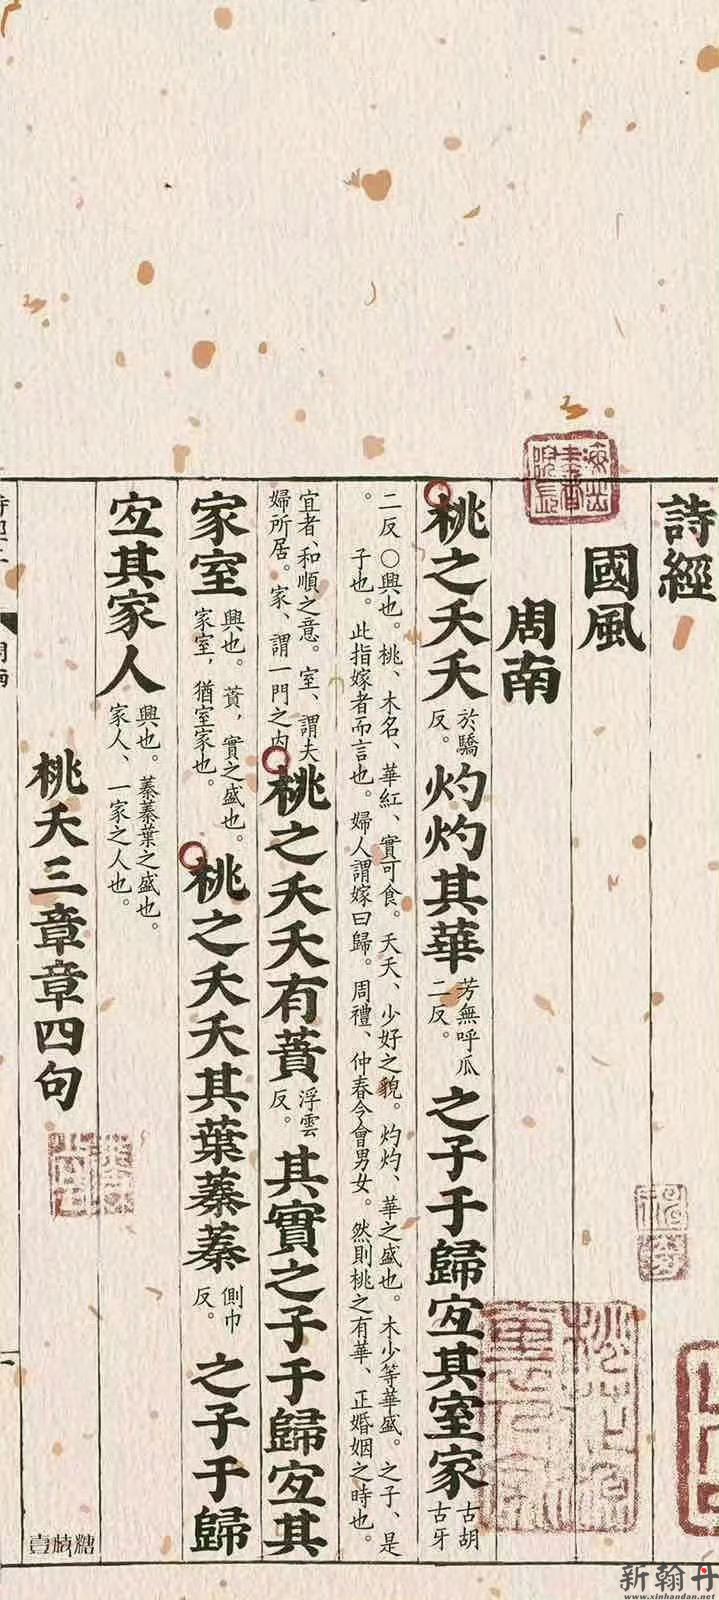 詩經
國風
周南
桃之夭夭
於驕
反。
灼灼其華
芳無呼瓜
二反。
之子于歸宐其室家
古胡
古牙
二反〇興也。桃、木名、華紅、實可食。夭夭、少好之貌。灼灼、華之盛也。木少等華盛。之子、是
子也。此指嫁者而言也。婦人謂嫁曰歸。周禮、仲春令會男女。然則桃之有華、正婚姻之時也。
宜者、和順之意。室、謂夫
婦所居。家、謂一門之內
。
桃之夭夭有蕡
浮雲
反。
其實之子于歸宐其
家室
興也。蕡，實之盛也。
家室，猶室家也。
桃之夭夭其葉蓁蓁
側巾
反。
之子于歸
宐其家人
興也。蓁蓁葉之盛也。
家人、一家之人也。
桃夭三章章四句
新翰丹
www.xinhandan.net